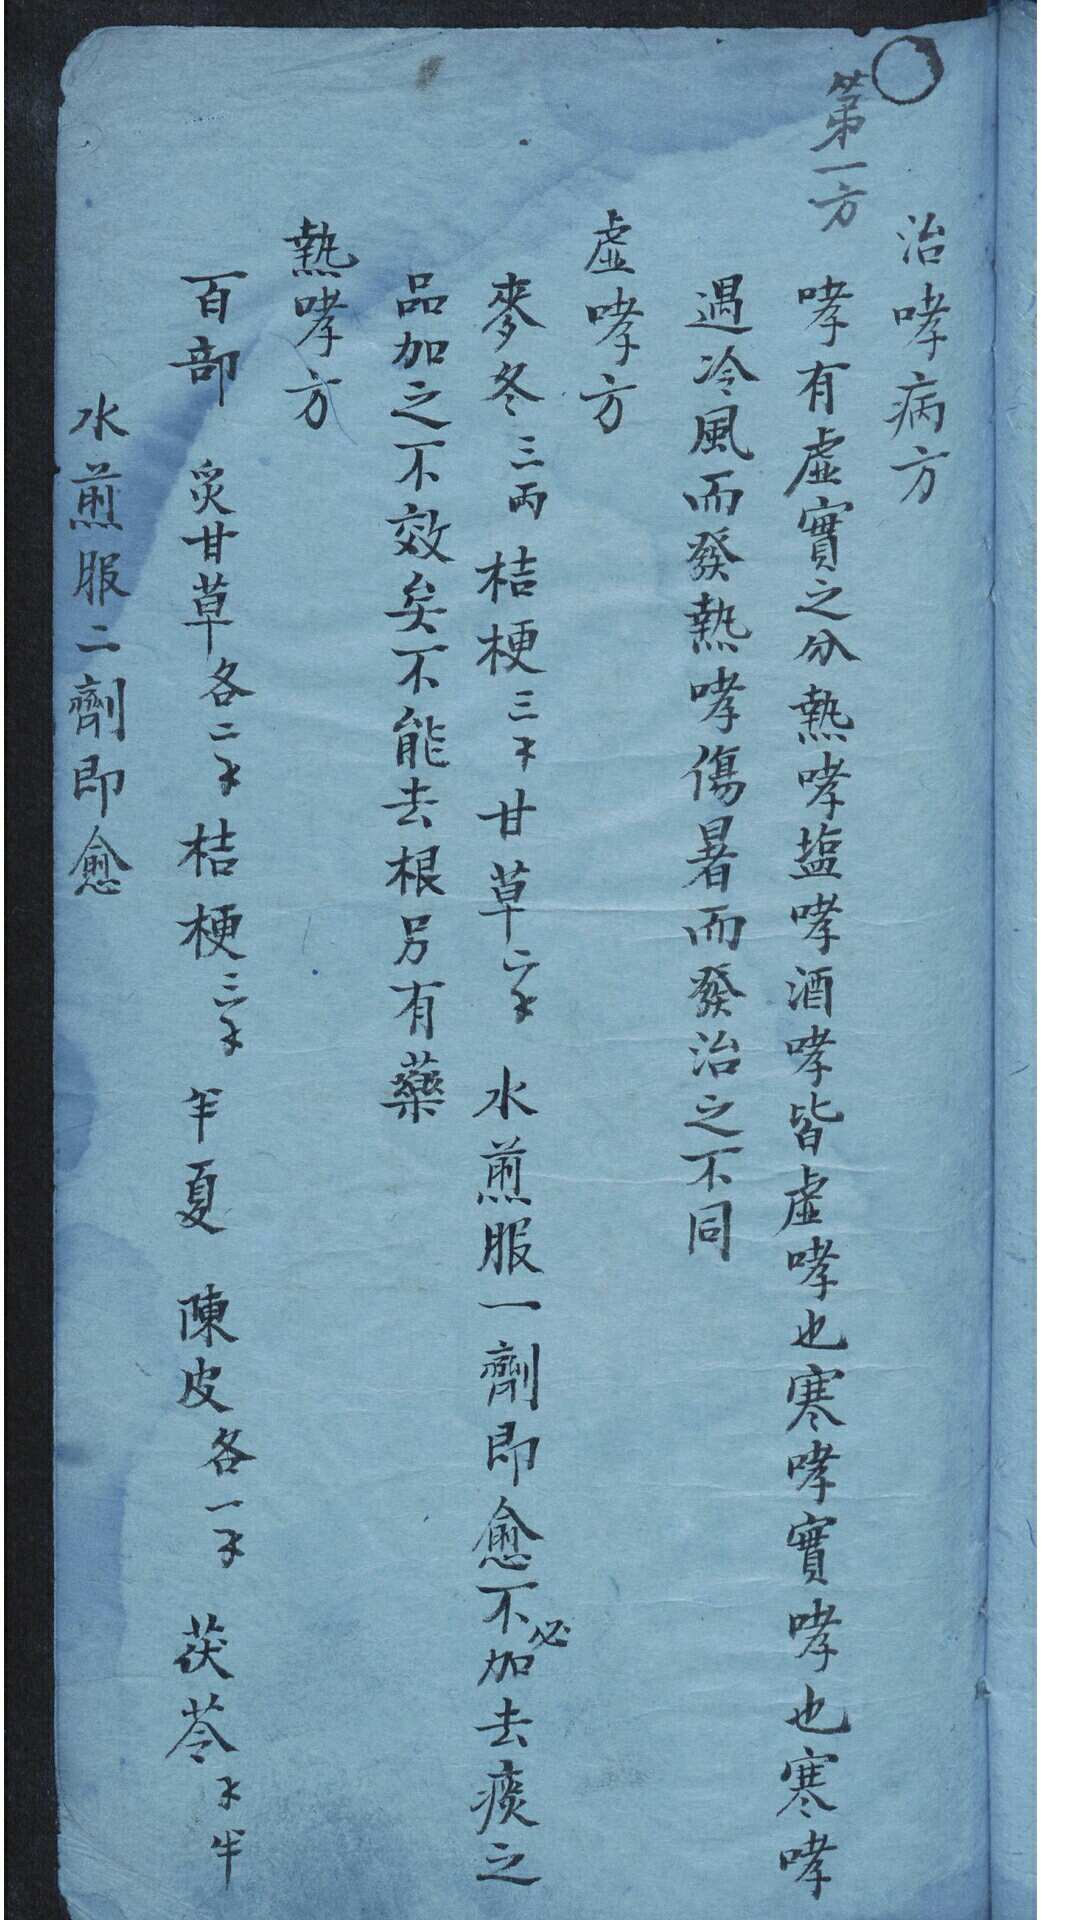 治哮病方
第一方
哮有虛實之分熱哮塩哮酒哮皆虛哮也寒哮實哮也寒哮
遇冷風而發熱哮傷暑而發治之不同
虛哮方
麥冬三両桔梗三才甘草二才水煎服一劑即愈不必加去痰之
品加之不效矣不能去根另有藥
熱哮方
百部炙甘草各二才桔梗三才半夏陳皮各一才茯苓才半
水煎服二劑即愈